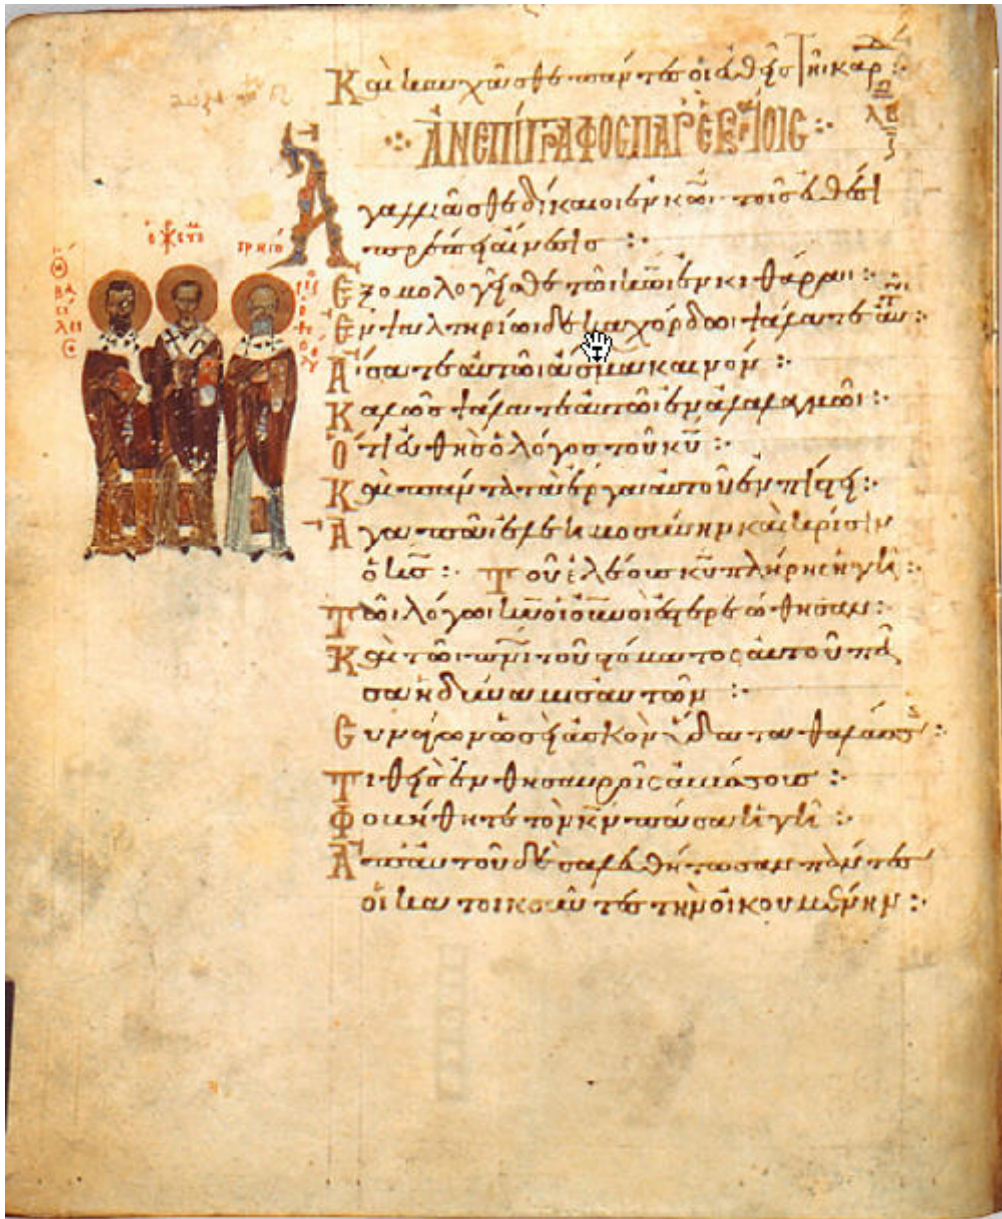 Καὶ καυχᾶσθε πάντες οἱ εὐθεῖς τῆι καρδ :·
ἈΝΕΠΊΓΡΑΦΟΣ ΠΑΡ ἙΒΡΑΙΟΙΣ :·
Ἀγαλλιᾶσθε δίκαιοι ἐν κῶι· τοῖς εὐθέσι
πρέπει αἴνεσις :·
Ἐξομολογεῖσθε τῶι κῶι ἐν κιθάραι :·
Ἐν ψαλτηρίωι δεκαχόρδωι ψάλατε αὐτῶι :·
Ἄισατε αὐτῶι ἆσμα καινόν :·
Καλῶς ψάλατε αὐτῶι ἐν ἀλαλαγμῶι :·
Ὅτι εὐθὴς ὁ λόγος τοῦ κῡ :·
Καὶ πάντα τὰ ἔργα αὐτοῦ ἐν πίστει :·
Ἀγαπᾶι ἐλεημοσύνην καὶ κρίσιν
ὁ κ̄ς̄ :· Τοῦ ἐλέους κῡ πλήρης ἡ γῆ :·
Τῶι λόγωι κῡ οἱ οὐνοὶ ἐστερεώθησαν :·
Καὶ τῶι πνῑ τοῦ στόματος αὐτοῦ πᾶ
σα ἡ δύναμις αὐτῶν :·
Συνάγων ὡς εἰ ἀσκὸν ὕδατα θαλάσσης :·
Τιθεὶς ἐν θησαυροῖς ἀβύσσους :·
Φοβηθήτω τὸν κ̄ν̄ πᾶσα ἡ γῆ :·
Ἀπ αὐτοῦ δὲ σαλευθήτωσαν πάντες
οἱ κατοικοῦντες τὴν οἰκουμένην :·